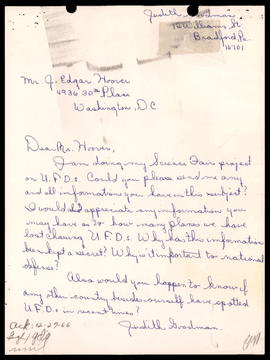 Judith Goodman
Williams St
Bradford, Pa
16701
Mr. J. Edgar Hoover
4936 30th Place
Washington, D.C
Dear Mr. Hoover,
I am doing my Science Fair project
on U.F.O.s. Could you please send me any
and all information you have on this subject?
I would appreciate any information you
may have as to how many planes we have
lost chasing U.F.O.s. Why has this information
been kept a secret? Why is it important to national
defense?
Also would you happen to know if
any other country besides ourself have spotted
U.F.O.s in recent times?
Judith Goodman.
Ack: 12-27-66